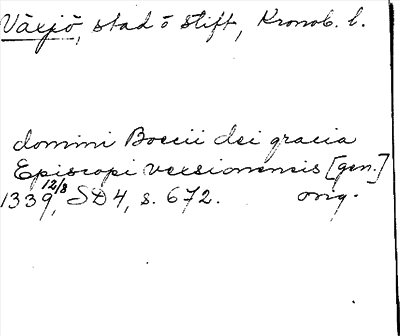 Växjö, stad o stift, Kronob. l.
domini Boecii dei gracia
Episcopi vexsionensis [gen.]
1339 12/8, SD 4, s. 672. orig.